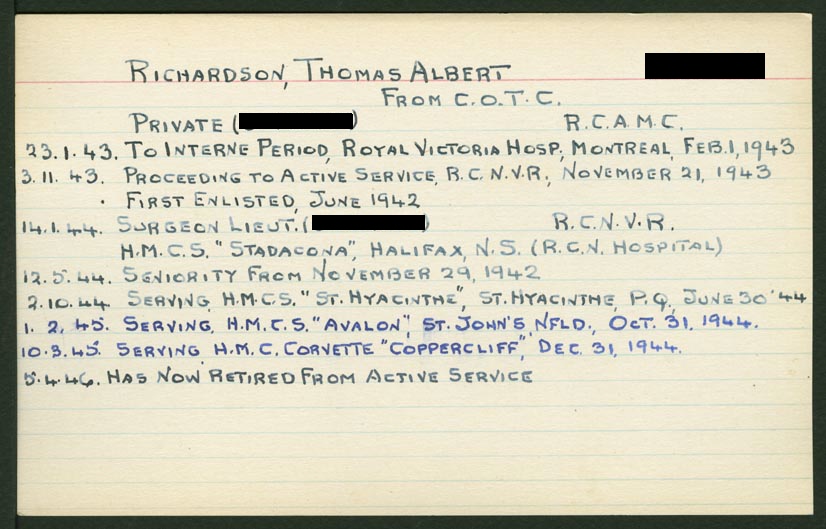 RICHARDSON, THOMAS ALBERT
FROM C.O.T.C.
PRIVATE ( ) R.C.A.M.C.
23.1.43. TO INTERNE PERIOD, ROYAL VICTORIA HOSP, MONTREAL, FEB.1, 1943
3.11.43. PROCEEDING TO ACTIVE SERVICE, R.C.N.V.R., NOVEMBER 21, 1943
· FIRST ENLISTED, JUNE 1942
14.1.44. SURGEON LIEUT. ( ) R.C.N.V.R.
H.M.C.S. "STADACONA", HALIFAX, N.S. (R.C.N. HOSPITAL)
12.5.44. SENIORITY FROM NOVEMBER 29, 1942
2.10.44. SERVING, H.M.C.S. "ST. HYACINTHE", ST. HYACINTHE, P.Q, JUNE 30 '44
1.2.45. SERVING, H.M.C.S. "AVALON", ST. JOHN'S, NFLD., OCT. 31, 1944.
10.3.45. SERVING, H.M.C. CORVETTE "COPPERCLIFF", DEC. 31, 1944.
5.4.46. HAS NOW RETIRED FROM ACTIVE SERVICE